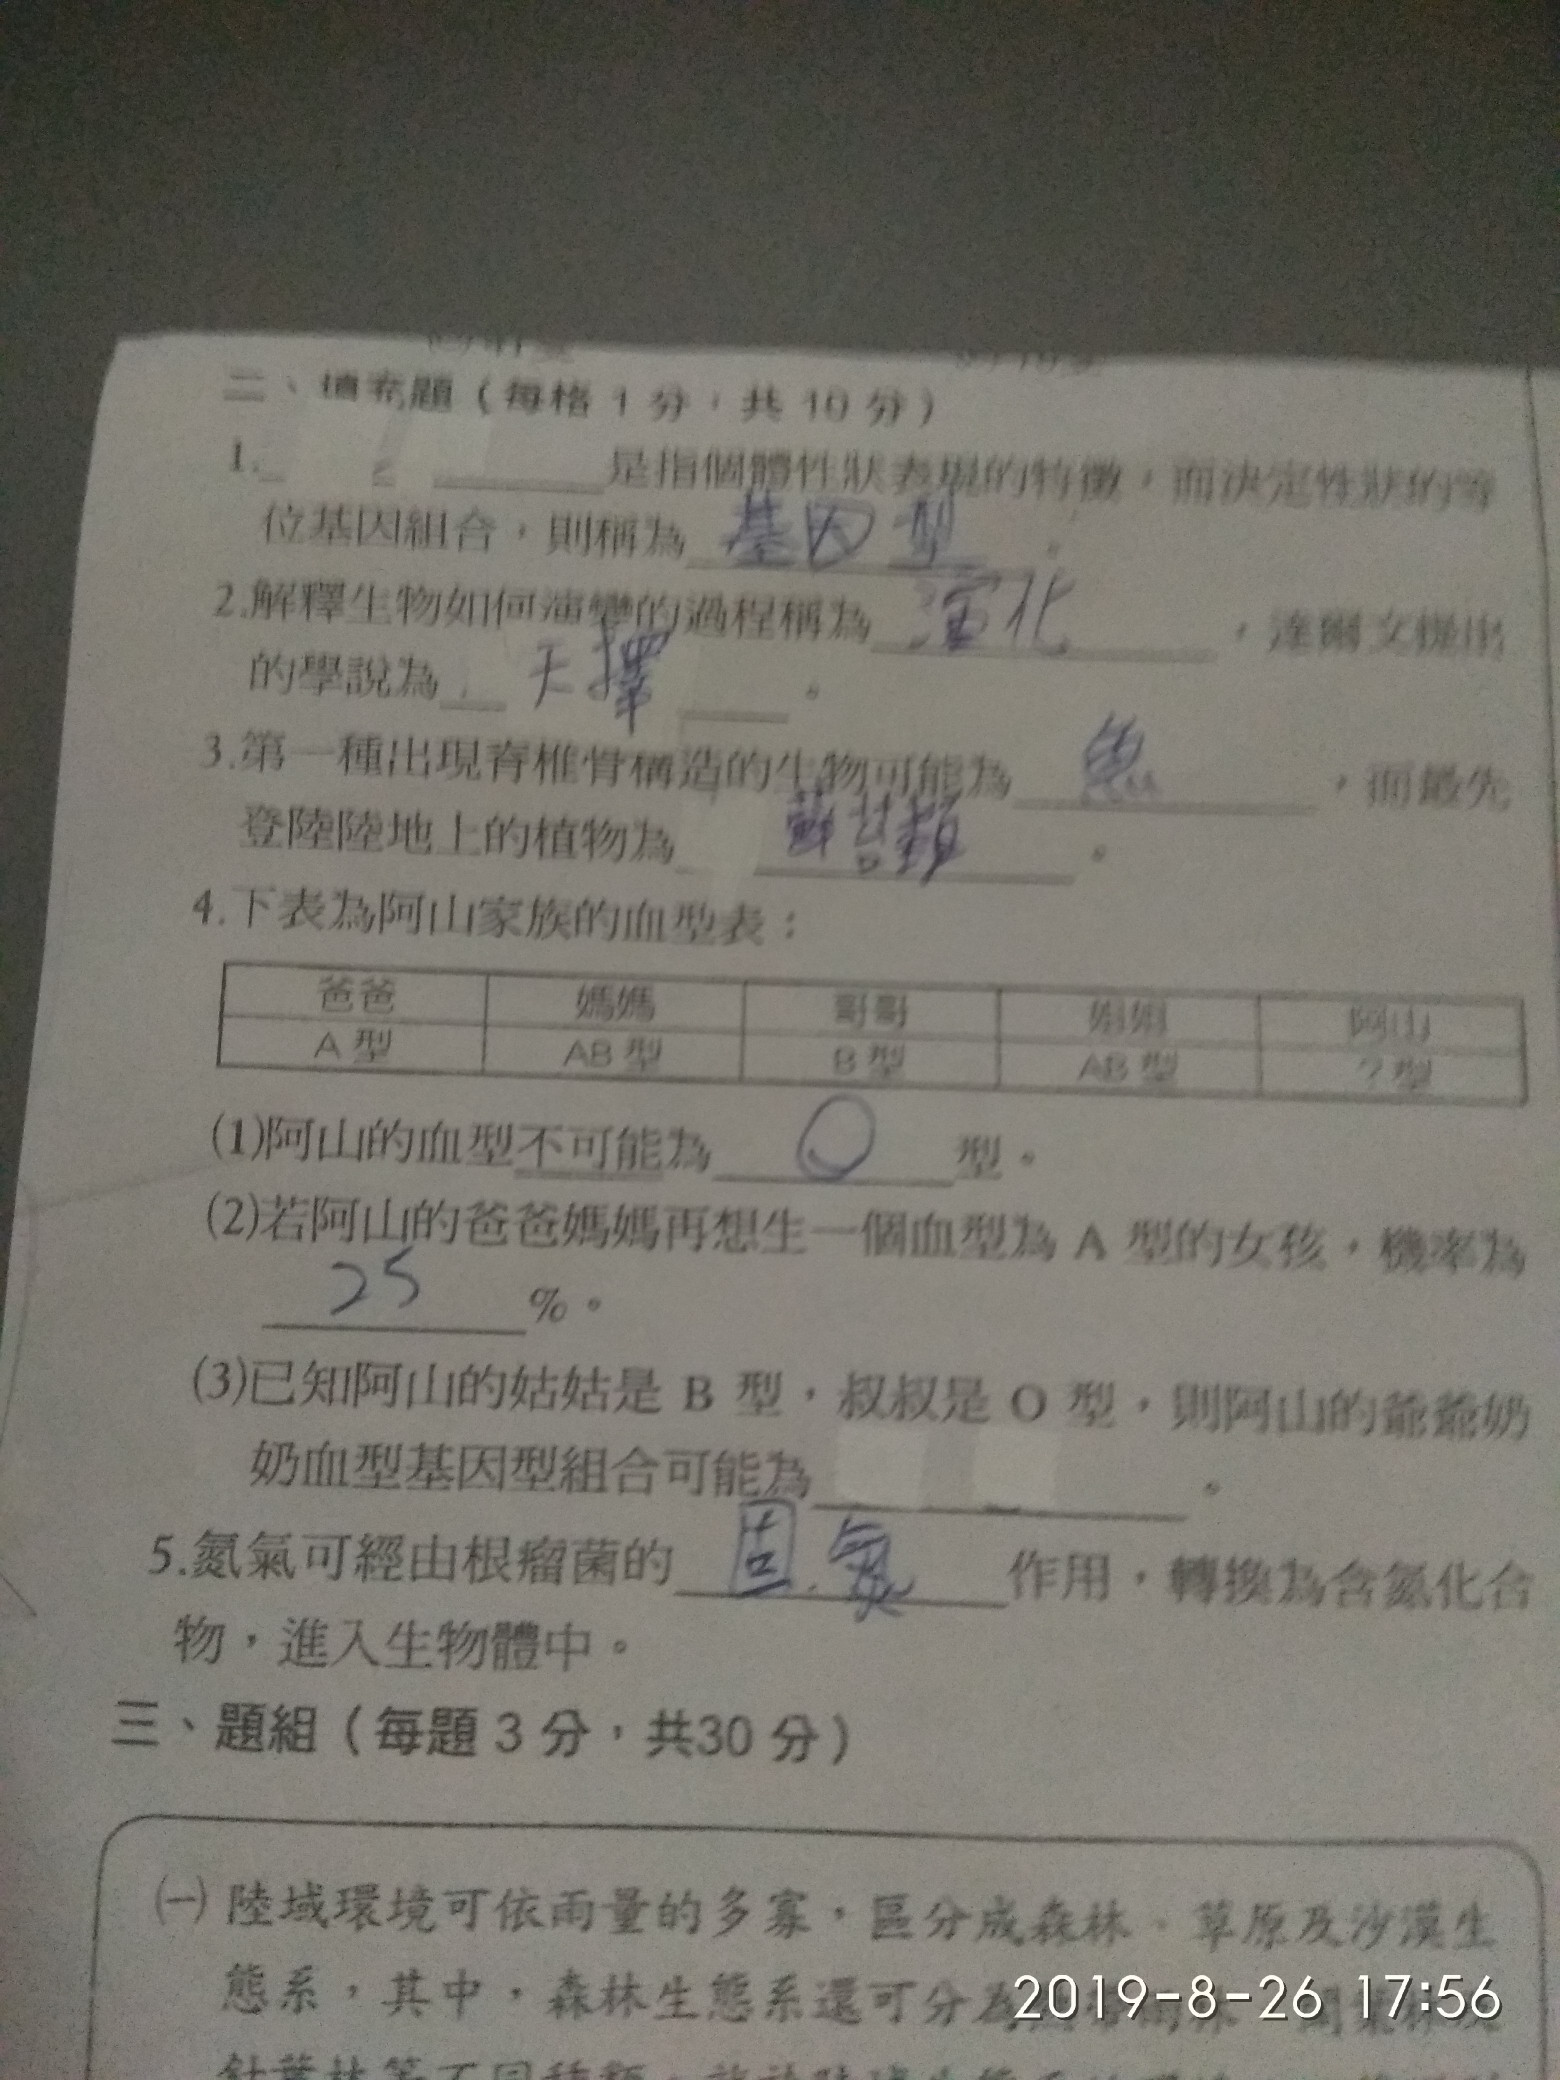 二、填充題（每格 1 分，共 10 分）
1. 是指個體性狀表現的特徵，而決定性狀的等
位基因組合，則稱為 基因型 。
2.解釋生物如何演變的過程稱為 演化 ，達爾文提出
的學說為 天擇 。
3.第一種出現脊椎骨構造的生物可能為 魚 ，而最先
登陸陸地上的植物為 蘚苔類 。
4.下表為阿山家族的血型表：
爸爸 媽媽 哥哥 姐姐 阿山
A 型 AB 型 B 型 AB 型 ？型
(1)阿山的血型不可能為 O 型。
(2)若阿山的爸爸媽媽再想生一個血型為 A 型的女孩，機率為
25 %。
(3)已知阿山的姑姑是 B 型，叔叔是 O 型，則阿山的爺爺奶
奶血型基因型組合可能為 。
5.氮氣可經由根瘤菌的 固氮 作用，轉換為含氮化合
物，進入生物體中。
三、題組（每題 3 分，共30 分）
㈠ 陸域環境可依雨量的多寡，區分成森林、草原及沙漠生
態系，其中，森林生態系還可分為
針葉林等不同種類。
2019-8-26 17:56